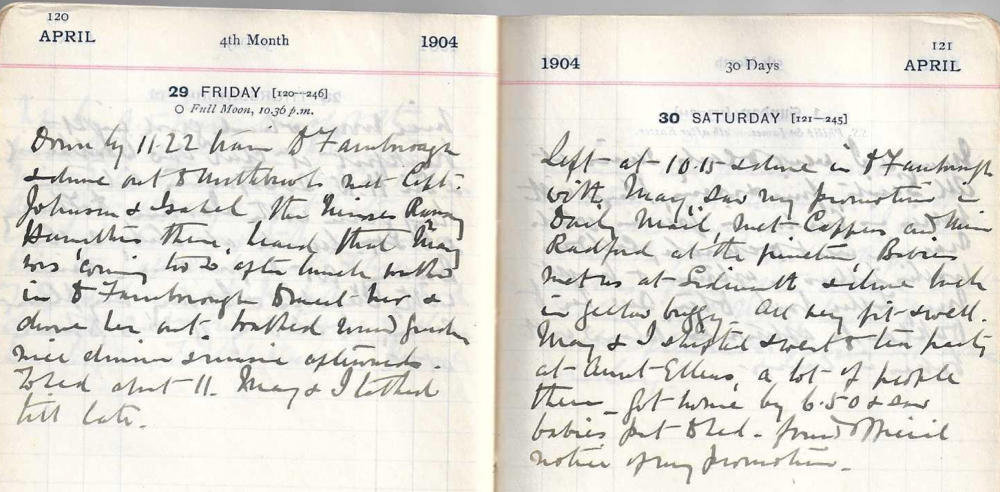 120
APRIL 4th Month 1904
29 FRIDAY [120—246]
Full Moon, 10.36 p.m.
Down by 11.22 train to Farnborough
& drove out to met Capt.
Johnson & Isabel, the Misses
Hamilton there, heard that May
was coming too so after lunch walked
in to Farnborough to meet her &
drove her out. walked round garden
nice dinner & music afterwards.
To bed about 11. May & I talked
till late.
1904 30 Days 121
APRIL
30 SATURDAY [121—245]
Left at 10.15 & drove in to Farnborough
with May, saw my promotion in
Daily Mail, met Cappers and Miss
Radford at the junction, Babies
met us at Sidmouth & drove back
in yellow buggy. All very fit & well.
May & I started & went to tea party
at Aunt Ellens, a lot of people
there – got home by 6.50 & saw
babies put to bed – found official
notice of my promotion –